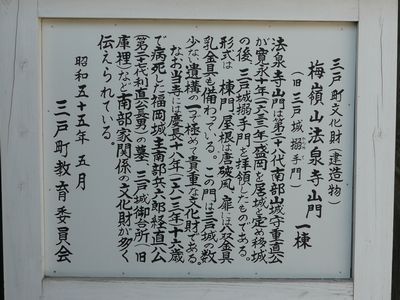 三戸町文化財(建造物)
梅嶺山法泉寺山門 一棟
(旧三戸城搦手門)
法泉寺山門は第二十八代南部山城守重直公
が寛永十年(一六三三年)盛岡を居城と定め移城
の後、三戸城搦手門を拝領したものである。
形式は棟門、屋根は唐破風、扉には八双金具
乳金具も備わっている。この門は三戸城の数
少ない遺構の一つで極めて貴重な文化財である。
なお当寺には慶長十八年(一六一三年)十六歳
で病死した福岡城主南部兵六郎経直公
(第二十七代利直公二男)の墓、三戸城御台所(旧
庫裡)など南部家関係の文化財が多く
伝えられている。
昭和五十五年五月
三戸町教育委員会